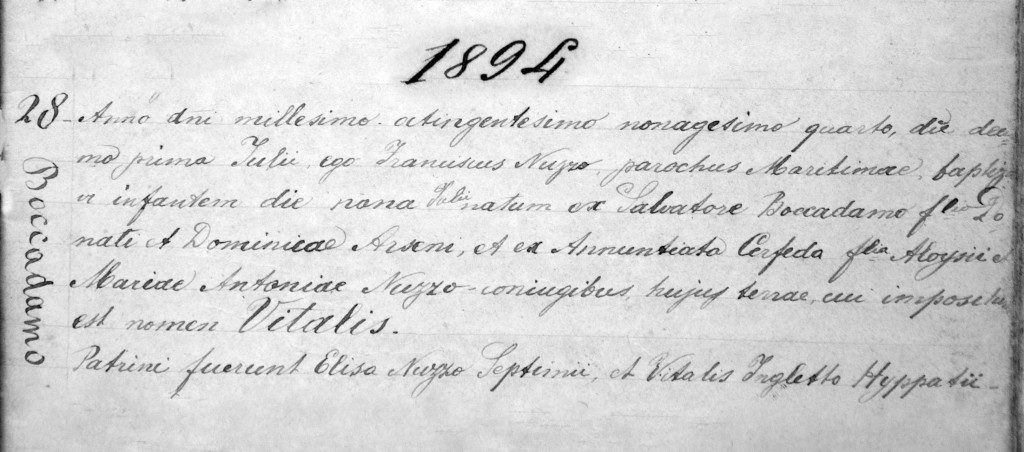 1894
28- Anno dni millesimo octingentesimo nonagesimo quarto, die deci-
mo prima Julii, ego Franciscus Nuzzo, parochus Maritimae, baptiza-
vi infantem die nona Julii natum ex Salvatore Boccadamo filio Do
nati et Dominicae Arseni, et ex Annuntiata Cerfeda filia Aloysii et
Mariae Antoniae Nuzzo coniugibus, hujus terrae, cui impositum
est nomen Vitalis.
Patrini fuerunt Elisa Nuzzo Septimii, et Vitalis Ingletto Hyppatii-
Boccadamo